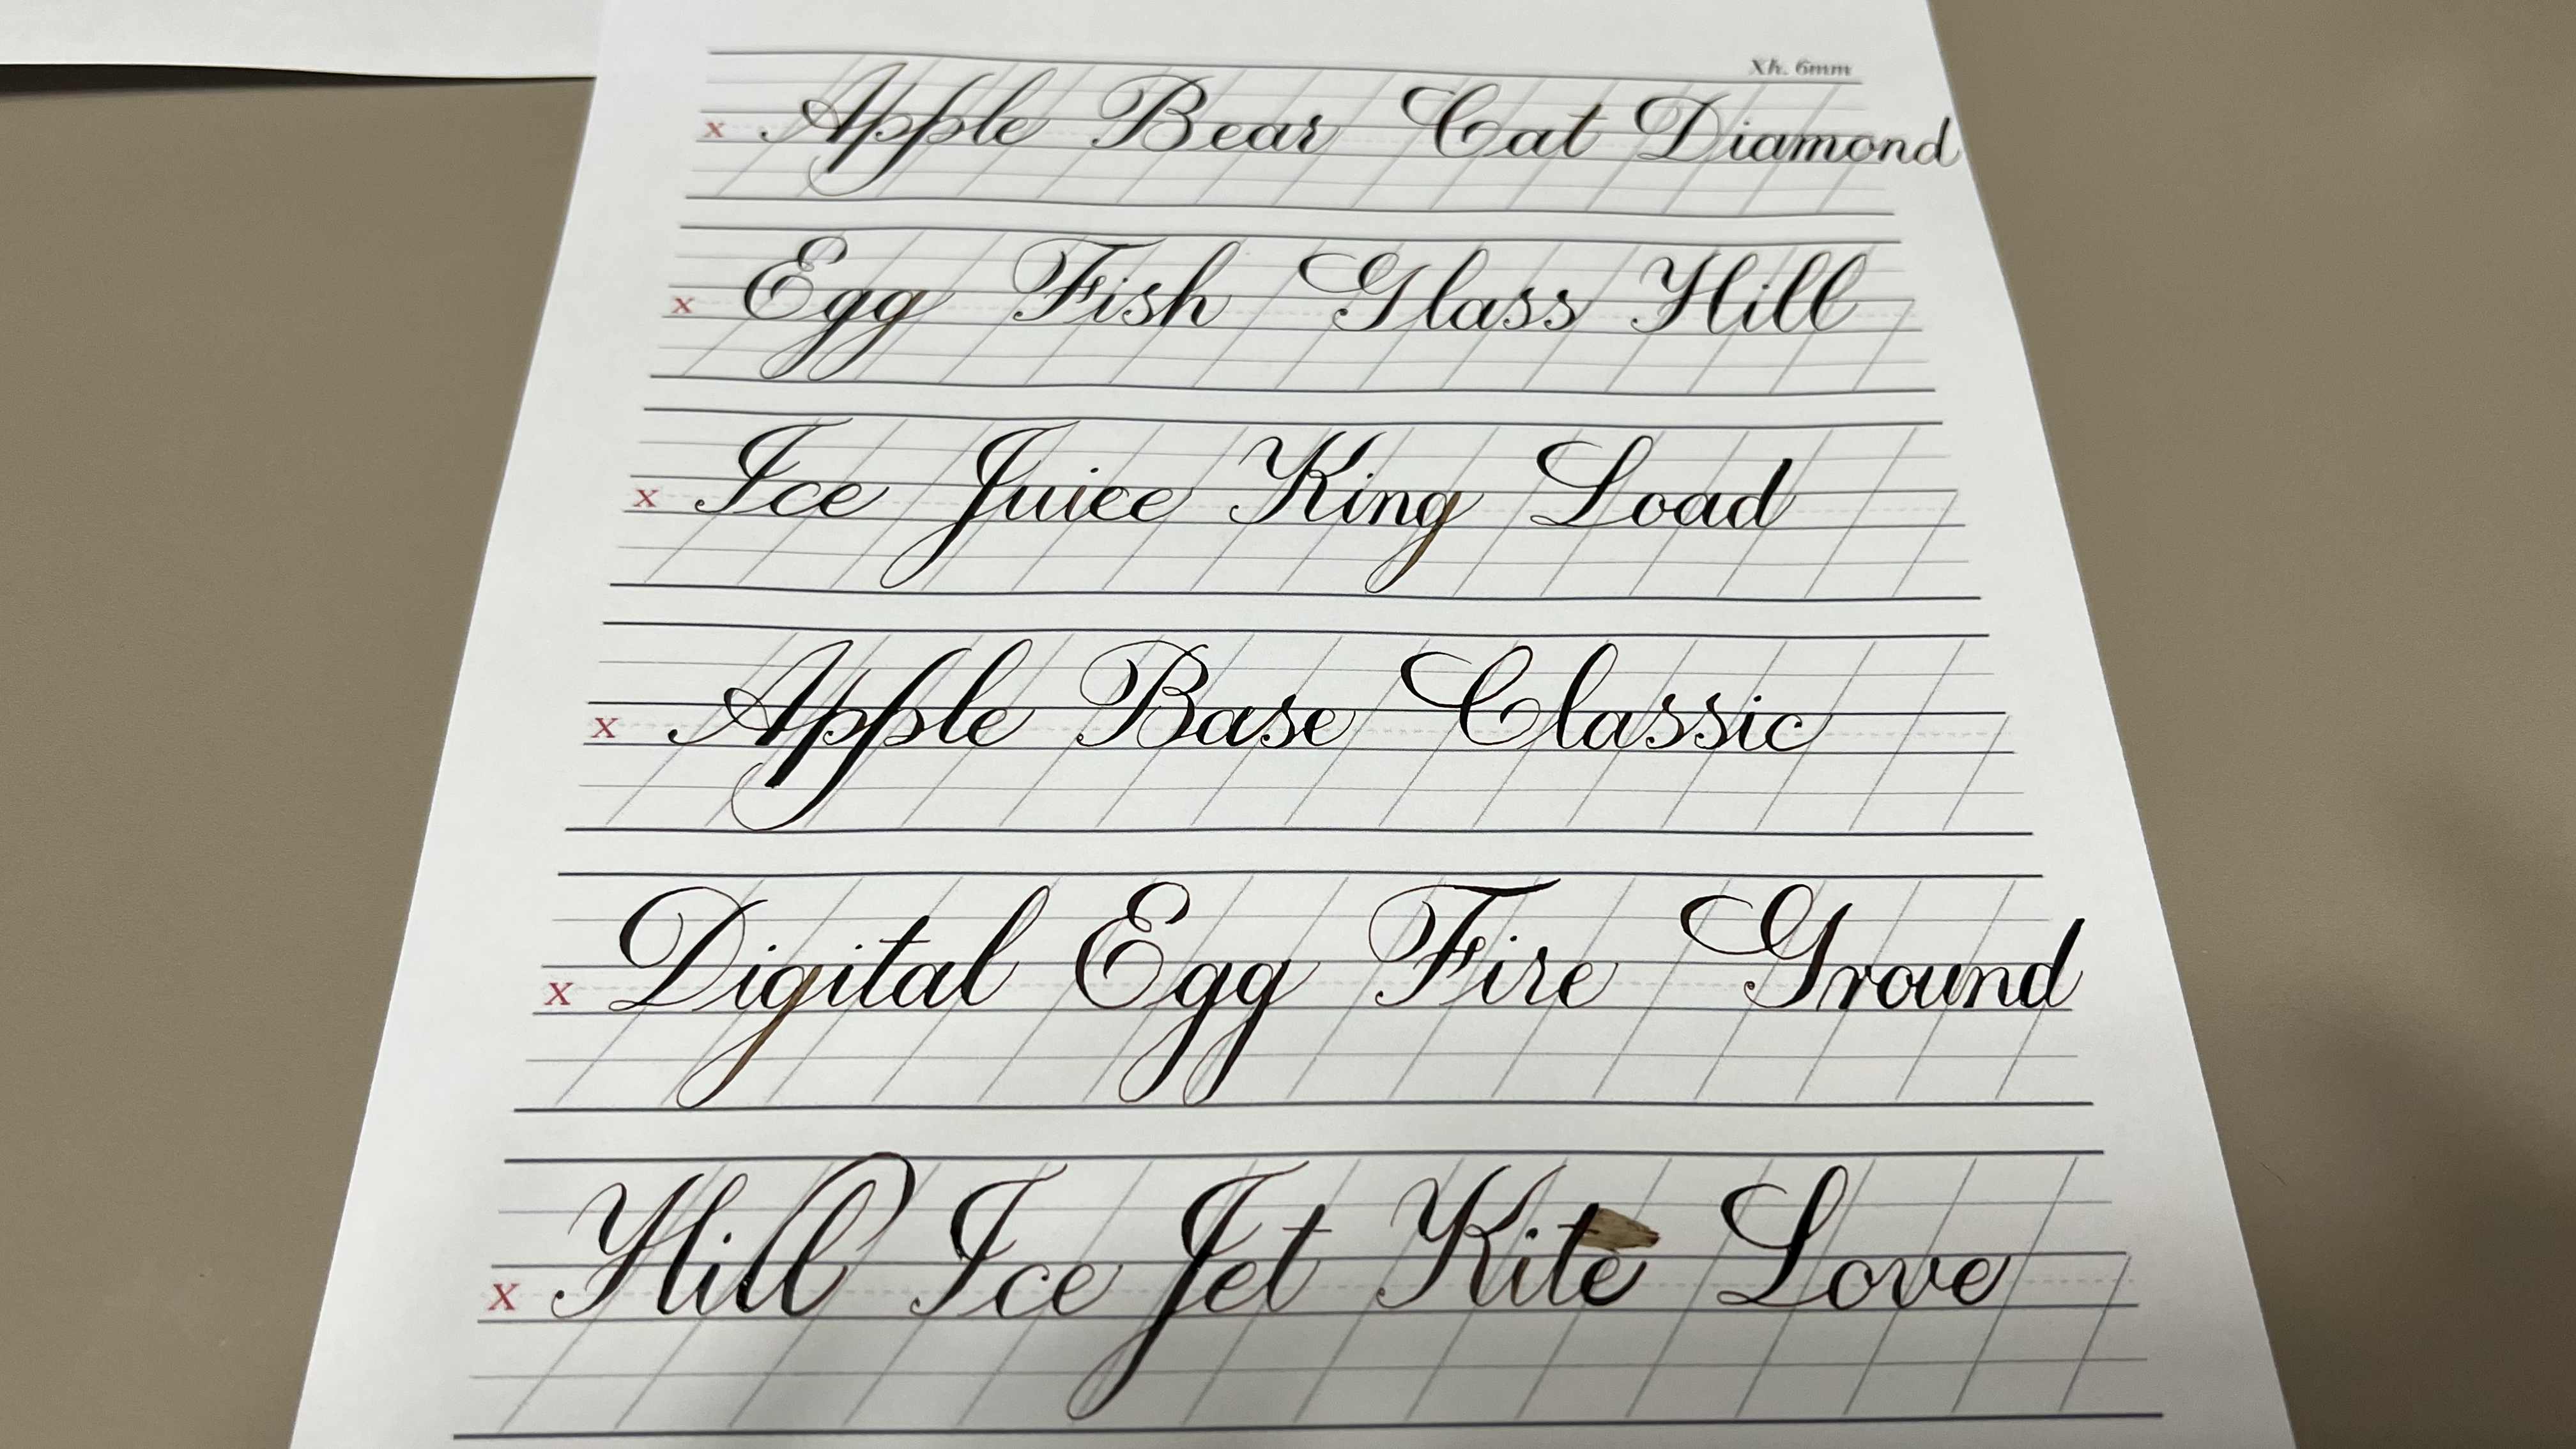 Xh. 6mm
x Apple Bear Cat Diamond
x Egg Fish Glass Hill
x Ice Juice King Load
x Apple Base Classic
x Digital Egg Fire Ground
x Hill Ice Jet Kite Love